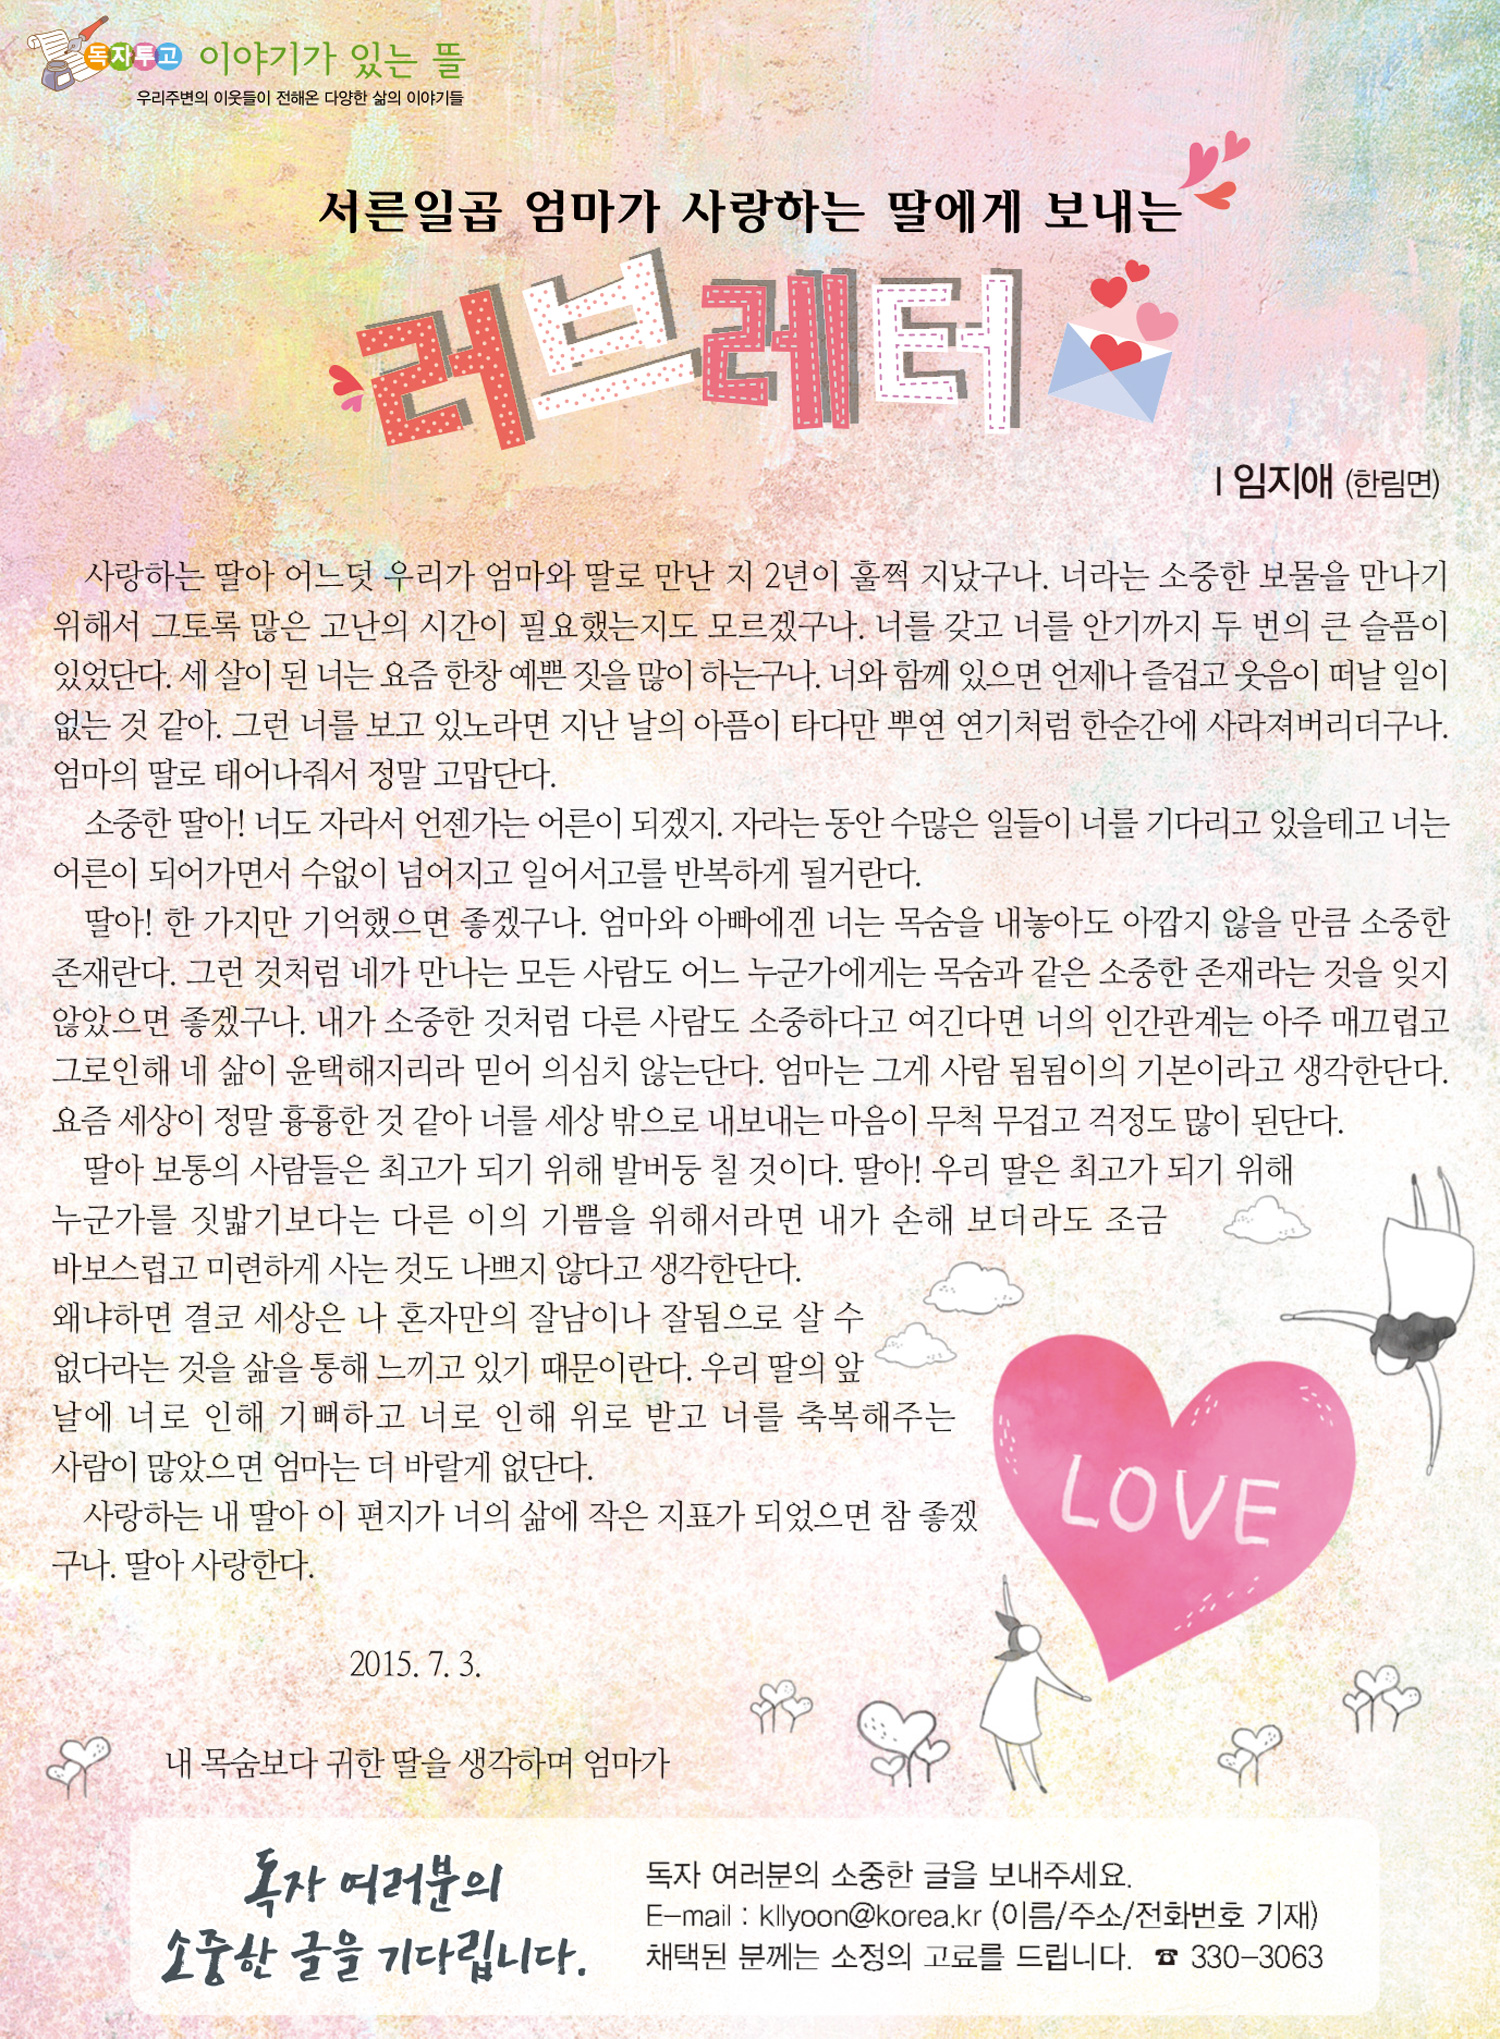 독자투고 이야기가 있는 뜰
우리주변의 이웃들이 전해온 다양한 삶의 이야기들
서른일곱 엄마가 사랑하는 딸에게 보내는
러브레터
I 임지애 (한림면)
사랑하는 딸아 어느덧 우리가 엄마와 딸로 만난 지 2년이 훌쩍 지났구나. 너라는 소중한 보물을 만나기
위해서 그토록 많은 고난의 시간이 필요했는지도 모르겠구나. 너를 갖고 너를 안기까지 두 번의 큰 슬픔이
있었단다. 세 살이 된 너는 요즘 한창 예쁜 짓을 많이 하는구나. 너와 함께 있으면 언제나 즐겁고 웃음이 떠날 일이
없는 것 같아. 그런 너를 보고 있노라면 지난 날의 아픔이 타다만 뿌연 연기처럼 한순간에 사라져버리더구나.
엄마의 딸로 태어나줘서 정말 고맙단다.
소중한 딸아! 너도 자라서 언젠가는 어른이 되겠지. 자라는 동안 수많은 일들이 너를 기다리고 있을테고 너는
어른이 되어가면서 수없이 넘어지고 일어서고를 반복하게 될거란다.
딸아! 한 가지만 기억했으면 좋겠구나. 엄마와 아빠에겐 너는 목숨을 내놓아도 아깝지 않을 만큼 소중한
존재란다. 그런 것처럼 네가 만나는 모든 사람도 어느 누군가에게는 목숨과 같은 소중한 존재라는 것을 잊지
않았으면 좋겠구나. 내가 소중한 것처럼 다른 사람도 소중하다고 여긴다면 너의 인간관계는 아주 매끄럽고
그로인해 네 삶이 윤택해지리라 믿어 의심치 않는단다. 엄마는 그게 사람 됨됨이의 기본이라고 생각한단다.
요즘 세상이 정말 흉흉한 것 같아 너를 세상 밖으로 내보내는 마음이 무척 무겁고 걱정도 많이 된단다.
딸아 보통의 사람들은 최고가 되기 위해 발버둥 칠 것이다. 딸아! 우리 딸은 최고가 되기 위해
누군가를 짓밟기보다는 다른 이의 기쁨을 위해서라면 내가 손해 보더라도 조금
바보스럽고 미련하게 사는 것도 나쁘지 않다고 생각한단다.
왜냐하면 결코 세상은 나 혼자만의 잘남이나 잘됨으로 살 수
없다라는 것을 삶을 통해 느끼고 있기 때문이란다. 우리 딸의 앞
날에 너로 인해 기뻐하고 너로 인해 위로 받고 너를 축복해주는
사람이 많았으면 엄마는 더 바랄게 없단다.
사랑하는 내 딸아 이 편지가 너의 삶에 작은 지표가 되었으면 참 좋겠
구나. 딸아 사랑한다.
LOVE
2015. 7. 3.
내 목숨보다 귀한 딸을 생각하며 엄마가
독자 여러분의
소중한 글을 기다립니다.
독자 여러분의 소중한 글을 보내주세요.
E-mail : kllyoon@korea.kr (이름/주소/전화번호 기재)
채택된 분께는 소정의 고료를 드립니다. ☎ 330-3063